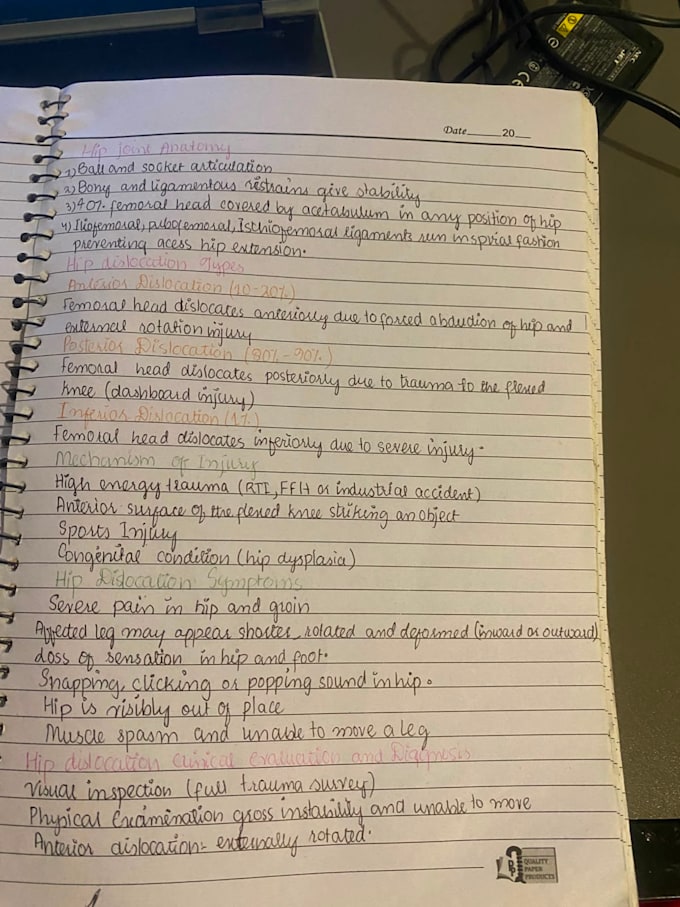 Date 20
Hip joint Anatomy
1) Ball and socket articulation
2) Bony and ligamentous restrains give stability
3) 40% femoral head covered by acetabulum in any position of hip
4) Iliofemoral, pubofemoral, Ischiofemoral ligaments run in sprial fashion
preventing acess hip extension.
Hip dislocation Types
Anterior Dislocation (10-20%)
Femoral head dislocates anteriorly due to forced abduction of hip and
external rotation injury
Posterior Dislocation (80%-90%)
Femoral head dislocates posteriorly due to trauma to the flexed
knee (dashboard injury)
Inferior Dislocation (1%)
Femoral head dislocates inferiorly due to severe injury.
Mechanism of Injury
High energy trauma (RTI, FFH or industrial accident)
Anterior surface of the flexed knee striking an object
Sports Injury
Congenital condition (hip dysplasia)
Hip Dislocation Symptoms
Severe pain in hip and groin
Affected leg may appear shorter, rotated and deformed (inward or outward)
Loss of sensation in hip and foot.
Snapping, clicking or popping sound in hip.
Hip is visibly out of place
Muscle spasm and unable to move a leg
Hip dislocation Clinical Evaluation and Diagnosis
Visual inspection (full trauma survey)
Physical Examination gross instability and unable to move
Anterior dislocation- externally rotated.
QUALITY
PAPER
PRODUCTS
NEC
JET
CE